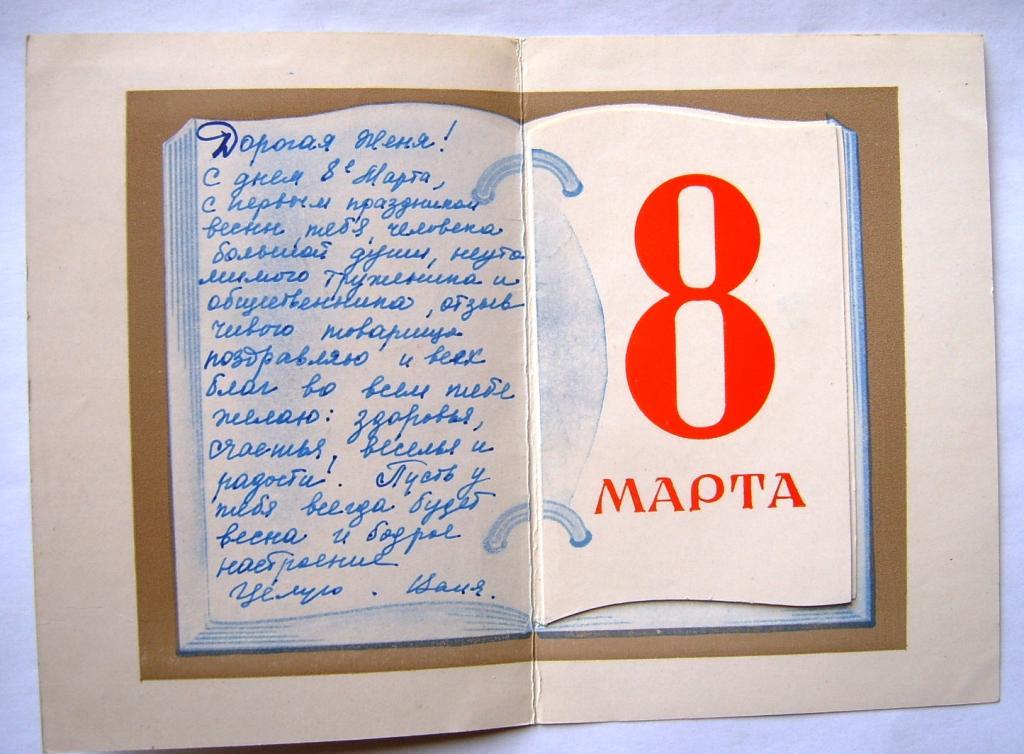 Дорогая Женя!
С днем 8е Марта,
с первым праздником
весны тебя, человека
большой души, неуто
мимого труженика и
общественника, отзыв
чивого товарища
поздравляю и всех
благ во всем тебе
желаю: здоровья,
счастья, веселья и
радости! Пусть у
тебя всегда будет
весна и бодрое
настроение
Целую.
8
МАРТА